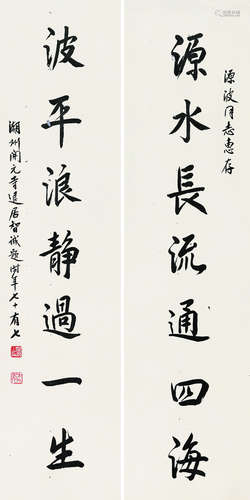 源波同志惠存
源水長流通四海
波平浪靜過一生
湖州開元寺退居智誠題時年七十有七